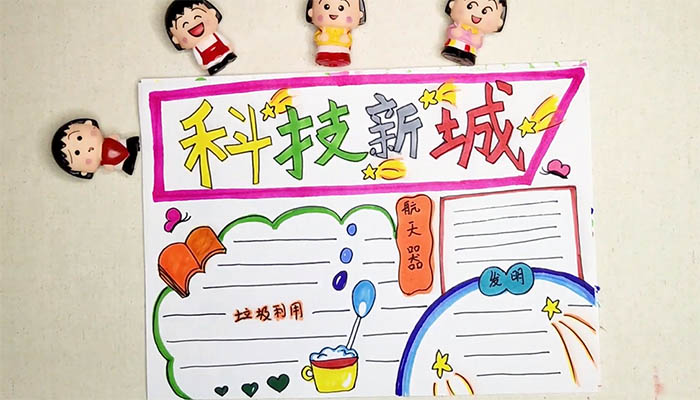 科技新城
航天器
发明
垃圾利用